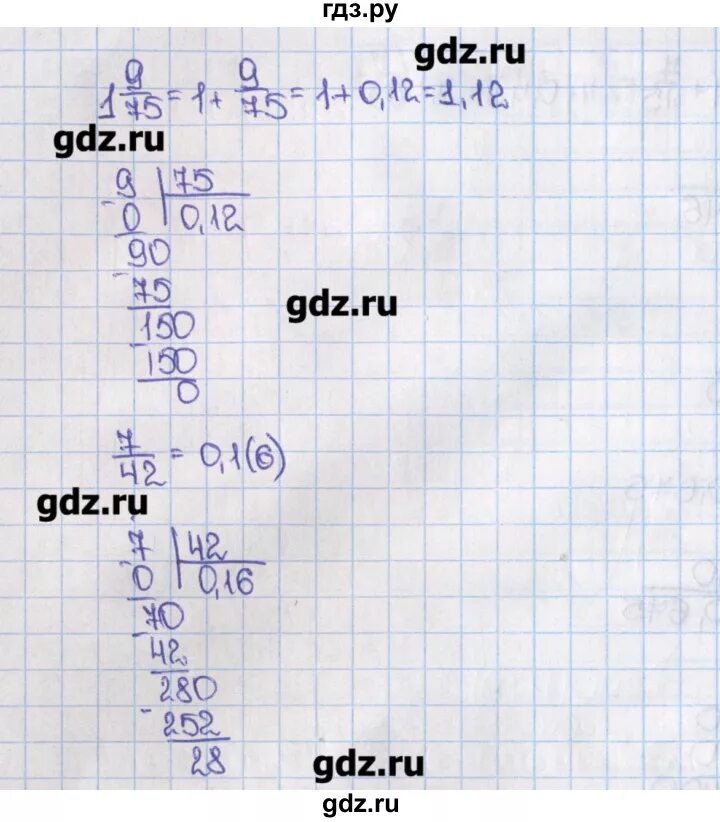 гдз.ру
gdz.ru
1 9/75 = 1 + 9/75 = 1 + 0,12 = 1,12
gdz.ru
9 | 75
- 0 | 0,12
90
- 75
gdz.ru
150
- 150
0
7/42 = 0,1(6)
gdz.ru
7 | 42
- 0 | 0,16
70
- 42
280
- 252
28
gdz.ru
gdz.ru